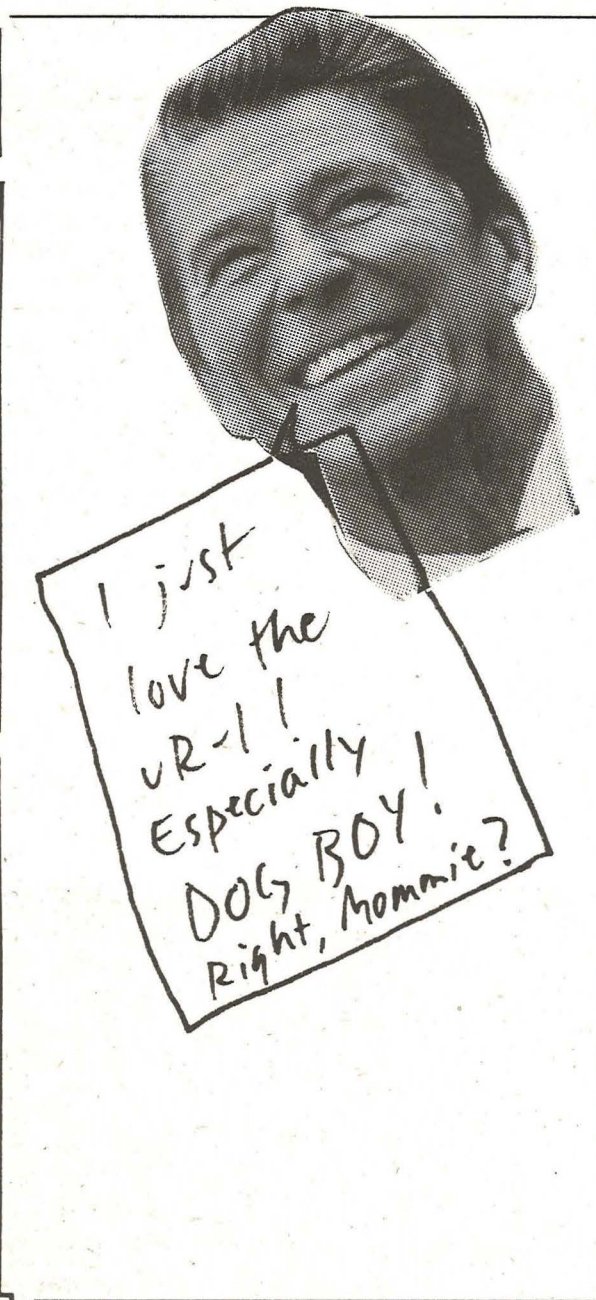 I just
love the
UR-1!
Especially
DOG BOY!
Right, Mommie?